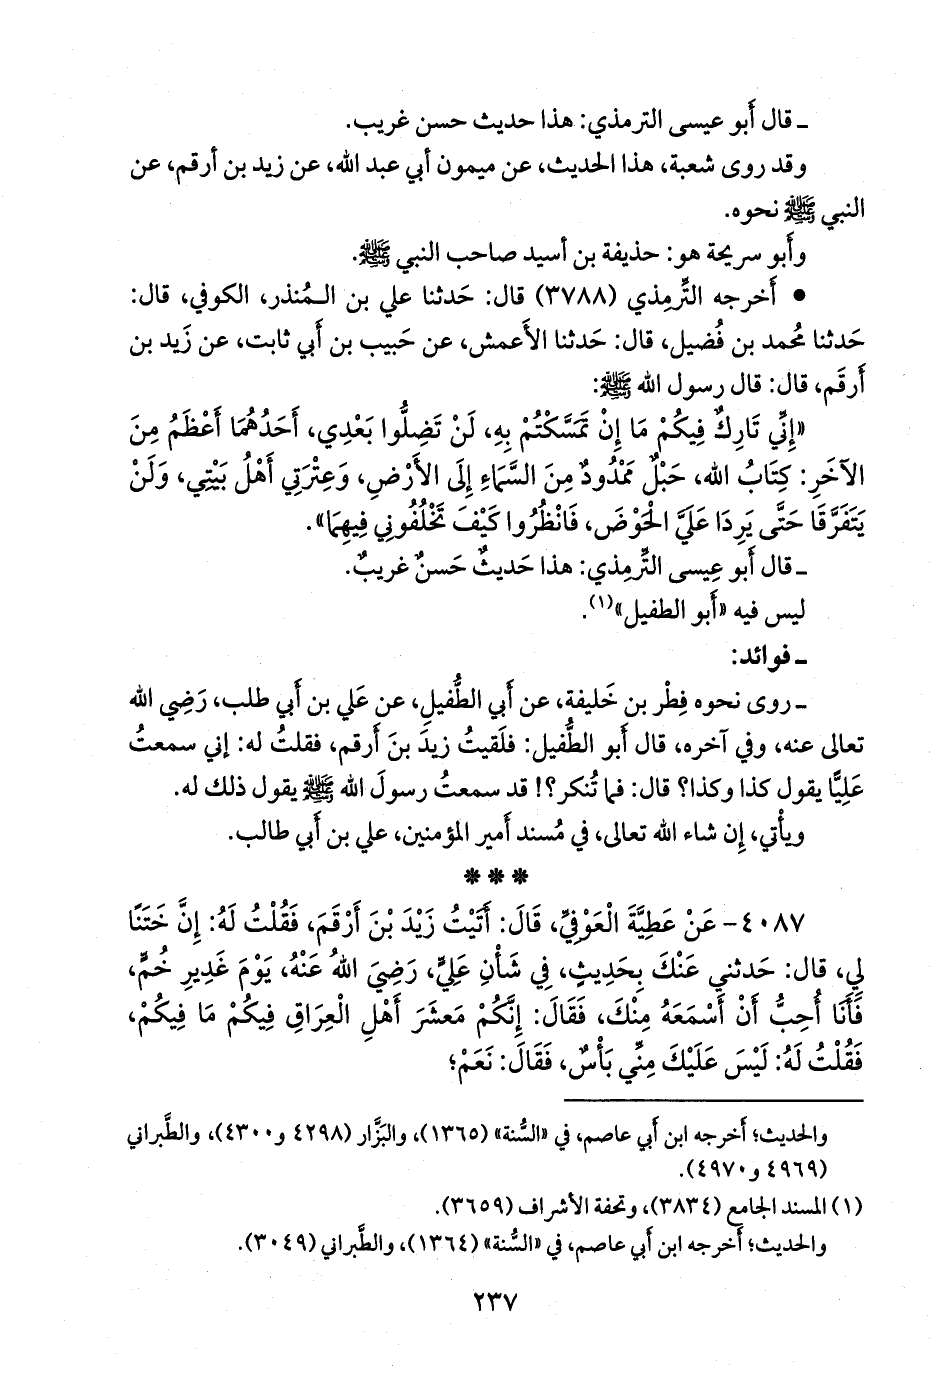 ـ قال أَبو عيسى الترمذي: هذا حديث حسن غريب.
وقد روى شعبة، هذا الحديث، عن ميمون أبي عبد الله، عن زيد بن أرقم، عن
النبي ﷺ نحوه.
وأَبو سريحة هو: حذيفة بن أسيد صاحب النبي ﷺ.
• أَخرجه التِّرمِذي (٣٧٨٨) قال: حَدثنا علي بن الـمُنذر، الكوفي، قال:
حَدثنا مُحمد بن فُضيل، قال: حَدثنا الأَعمش، عن حَبيب بن أَبي ثابت، عن زَيد بن
أَرقَم، قال: قال رسول الله ﷺ:
«إِنِّي تَارِكٌ فِيكُمْ مَا إِنْ تَمَسَّكْتُمْ بِهِ، لَنْ تَضِلُّوا بَعْدِي، أَحَدُهُمَا أَعْظَمُ مِنَ
الآخَرِ: كِتَابُ الله، حَبْلٌ مَمْدُودٌ مِنَ السَّمَاءِ إِلَى الأَرْضِ، وَعِتْرَتِي أَهْلُ بَيْتِي، وَلَنْ
يَتَفَرَّقَا حَتَّى يَرِدَا عَلَيَّ الْحَوْضَ، فَانْظُرُوا كَيْفَ تَخْلُفُونِي فِيهِمَا».
ـ قال أَبو عِيسى التِّرمِذي: هذا حَديثٌ حَسنٌ غريبٌ.
ليس فيه «أَبو الطفيل»(١).
ـ فوائد:
ـ روى نحوه فِطْر بن خَليفة، عن أَبي الطُّفيلِ، عن عَلي بن أَبي طلب، رَضِي الله
تعالى عنه، وفي آخره، قال أَبو الطُّفيل: فلَقيتُ زيدَ بنَ أَرقم، فقلتُ له: إني سمعتُ
عَلِيًّا يقول كذا وكذا؟ قال: فما تُنكر؟! قد سمعتُ رسولَ الله ﷺ يقول ذلك له.
ويأْتي، إِن شاء الله تعالى، في مُسند أَمير المؤمنين، علي بن أَبي طالب.
* * *
٤٠٨٧- عَنْ عَطِيَّةَ الْعَوْفِيِّ، قَالَ: أَتَيْتُ زَيْدَ بْنَ أَرْقَمَ، فَقُلْتُ لَهُ: إِنَّ خَتَنًا
لِي، قال: حَدثني عَنْكَ بِحَدِيثٍ، فِي شَأْنِ عَلِيٍّ، رَضِيَ اللهُ عَنْهُ، يَوْمَ غَدِيرِ خُمٍّ،
فَأَنَا أُحِبُّ أَنْ أَسْمَعَهُ مِنْكَ، فَقَالَ: إِنَّكُمْ مَعشَرَ أَهْلِ الْعِرَاقِ فِيكُمْ مَا فِيكُمْ،
فَقُلْتُ لَهُ: لَيْسَ عَلَيْكَ مِنِّي بَأْسٌ، فَقَالَ: نَعَمْ؛
والحديث؛ أَخرجه ابن أَبي عاصم، في «السُّنة» (١٣٦٥)، والبَزَّار (٤٢٩٨ و٤٣٠٠)، والطَّبراني
(٤٩٦٩ و٤٩٧٠).
(١) المسند الجامع (٣٨٣٤)، وتحفة الأشراف (٣٦٥٩).
والحديث؛ أَخرجه ابن أَبي عاصم، في «السُّنة» (١٣٦٤)، والطَّبراني (٣٠٤٩).
٢٣٧